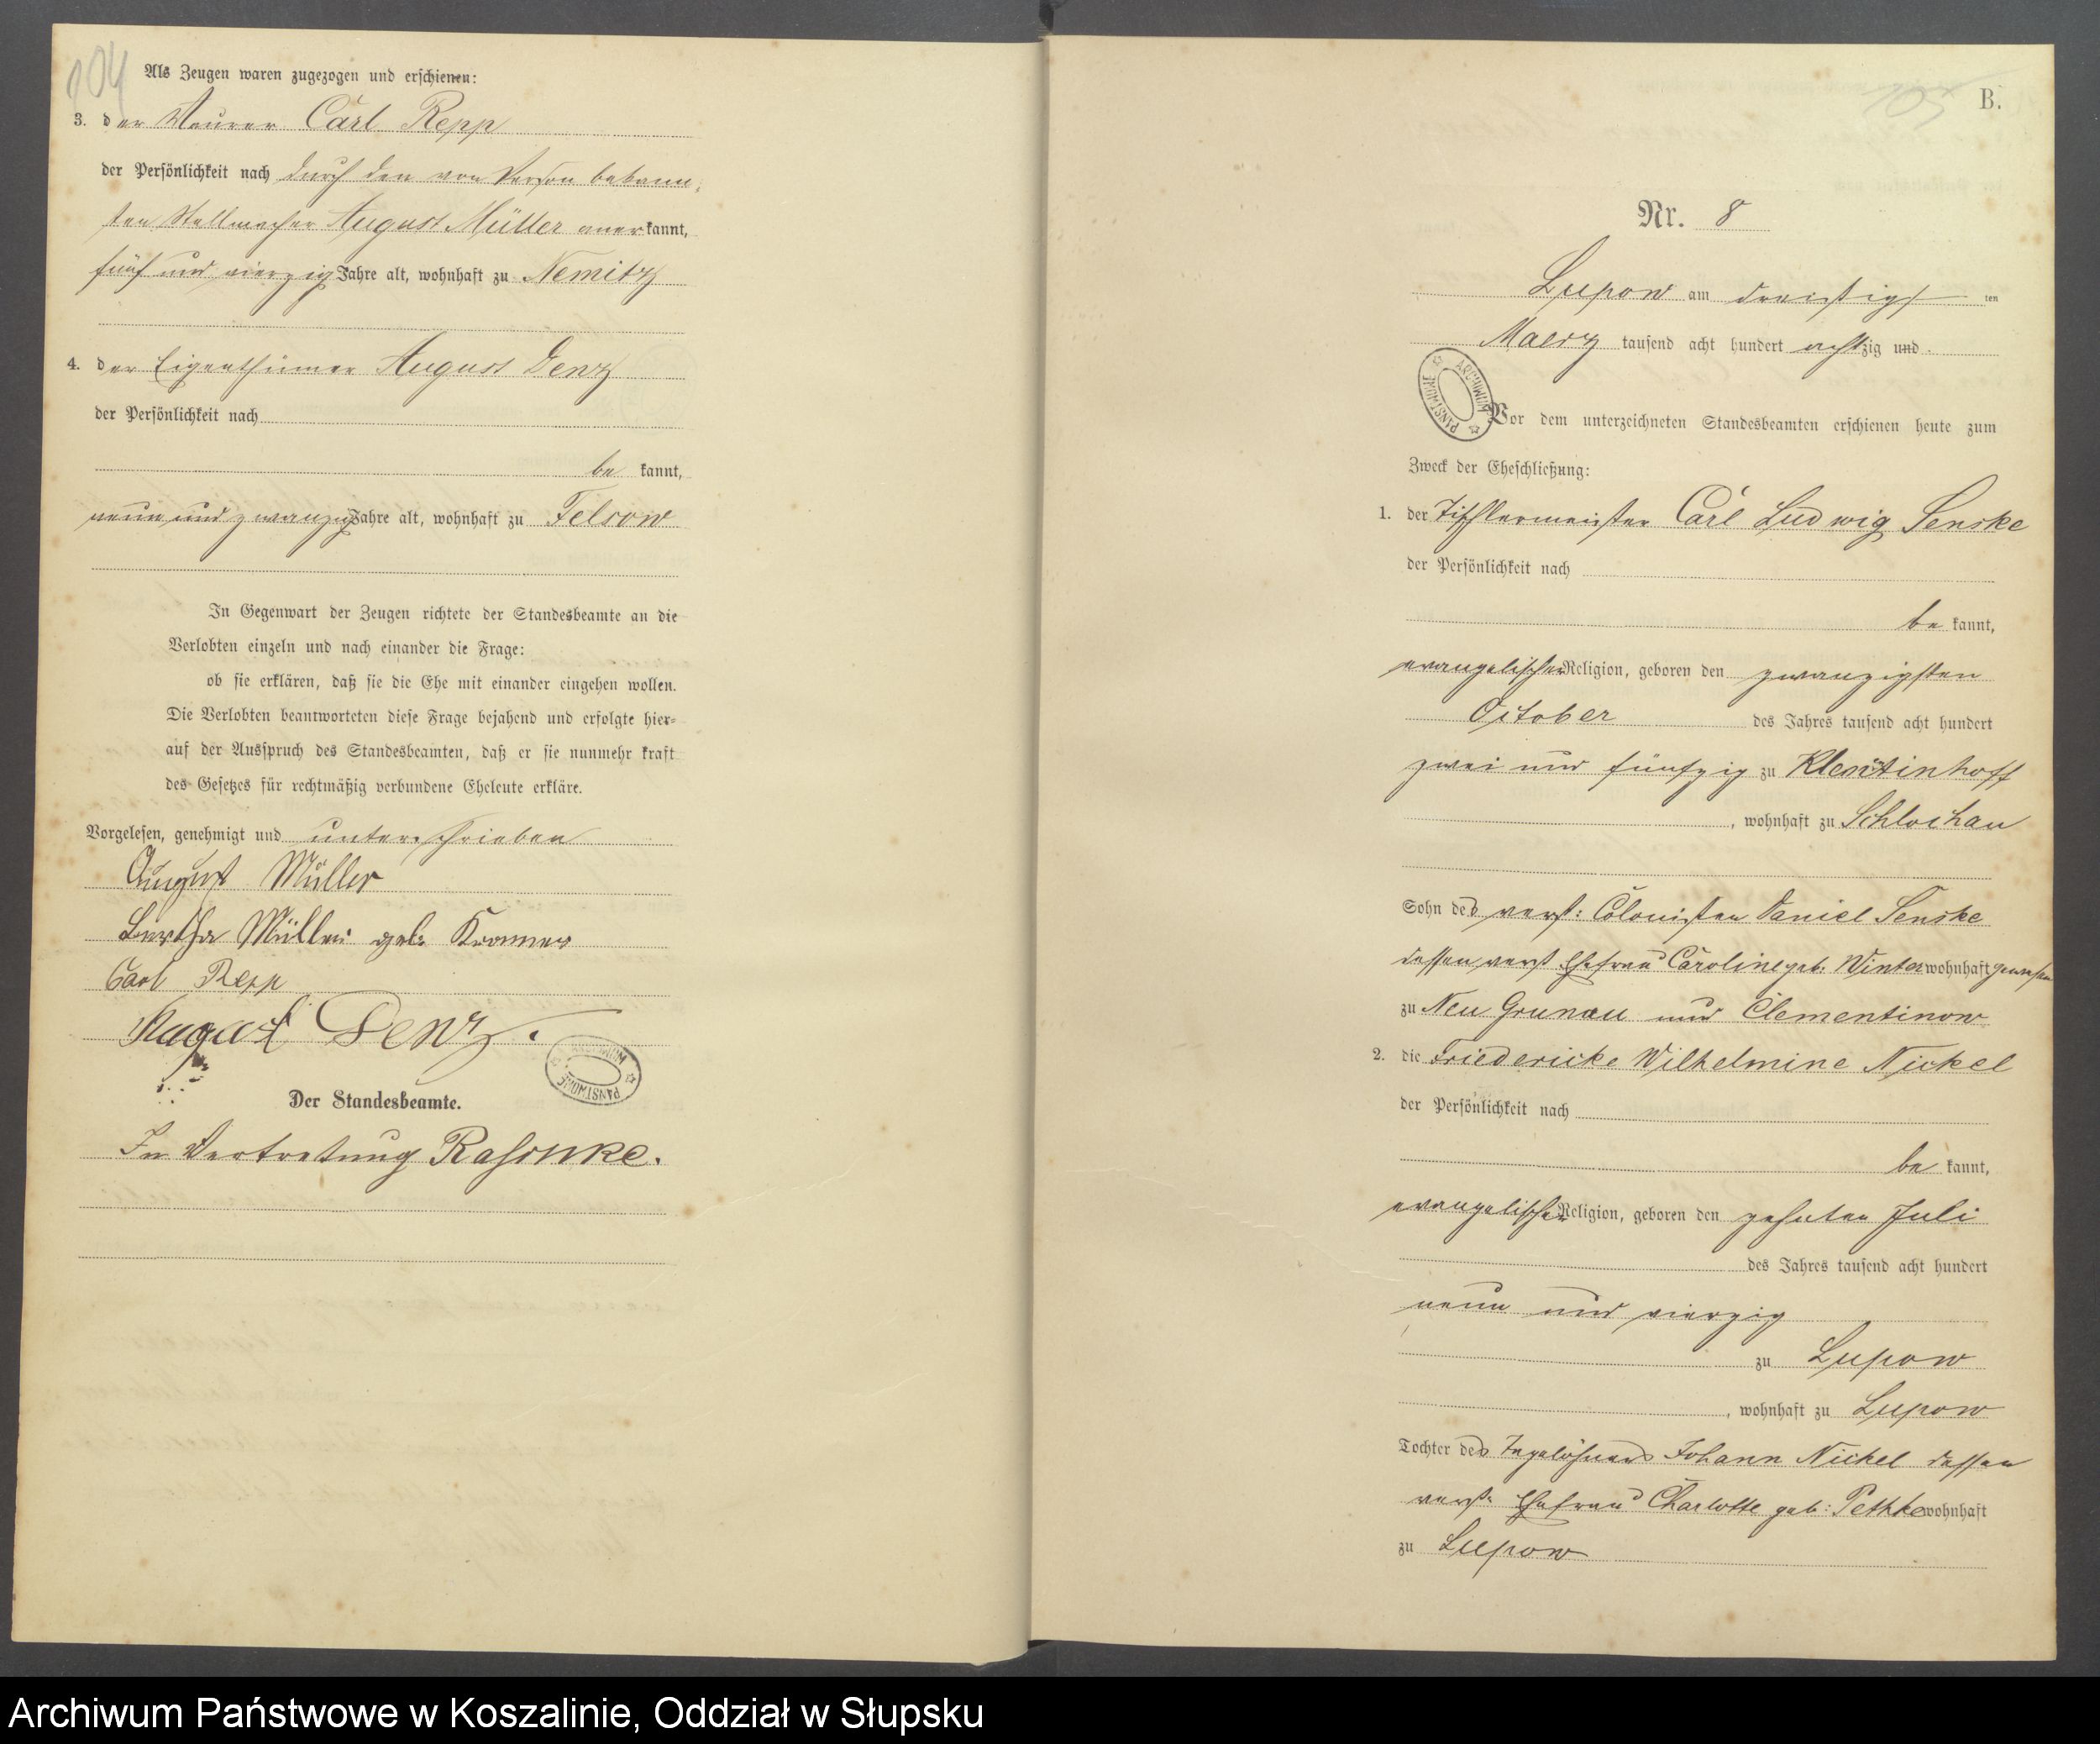 104
Als Zeugen waren zugezogen und erschienen:
3. der Maurer Carl Repp
der Persönlichkeit nach durch den von Person bekann-
ten Stellmacher August Müller anerkannt,
fünf und vierzig Jahre alt, wohnhaft zu Nemitz
4. der Eigenthümer August Denz
der Persönlichkeit nach
be kannt,
neun und zwanzig Jahre alt, wohnhaft zu Felsow
In Gegenwart der Zeugen richtete der Standesbeamte an die
Verlobten einzeln und nach einander die Frage:
ob sie erklären, daß sie die Ehe mit einander eingehen wollen.
Die Verlobten beantworteten diese Frage bejahend und erfolgte hier-
auf der Ausspruch des Standesbeamten, daß er sie nunmehr kraft
des Gesetzes für rechtmäßig verbundene Eheleute erkläre.
Vorgelesen, genehmigt und unterschrieben
August Müller
Bertha Müller geb: Kramer
Carl Repp
August Denz.
ARCHIWUM PAŃSTWOWE
Der Standesbeamte.
In Vertretung
105
B.
Nr. 8
Lupow am dreißigsten
Maerz tausend acht hundert achtzig und
ARCHIWUM PAŃSTWOWE
Vor dem unterzeichneten Standesbeamten erschienen heute zum
Zweck der Eheschließung:
1. der Tischlermeister Carl Ludwig Senske
der Persönlichkeit nach
be kannt,
evangelischer Religion, geboren den zwanzigsten
October des Jahres tausend acht hundert
zwei und fünfzig zu
, wohnhaft zu Schlochau
Sohn des verst: Colonisten Daniel Senske
dessen verst Ehefrau Caroline geb: Winter wohnhaft gewesen
zu Neu Grunau und Clementinow
2. die Friedericke Wilhelmine Nickel
der Persönlichkeit nach
be kannt,
evangelischer Religion, geboren den zehnten Juli
des Jahres tausend acht hundert
neun und vierzig
zu Lupow
, wohnhaft zu Lupow
Tochter des Tagelöhners Johann Nickel dessen
verst: Ehefrau Charlotte geb: Pethke wohnhaft
zu Lupow
Archiwum Państwowe w Koszalinie, Oddział w Słupsku